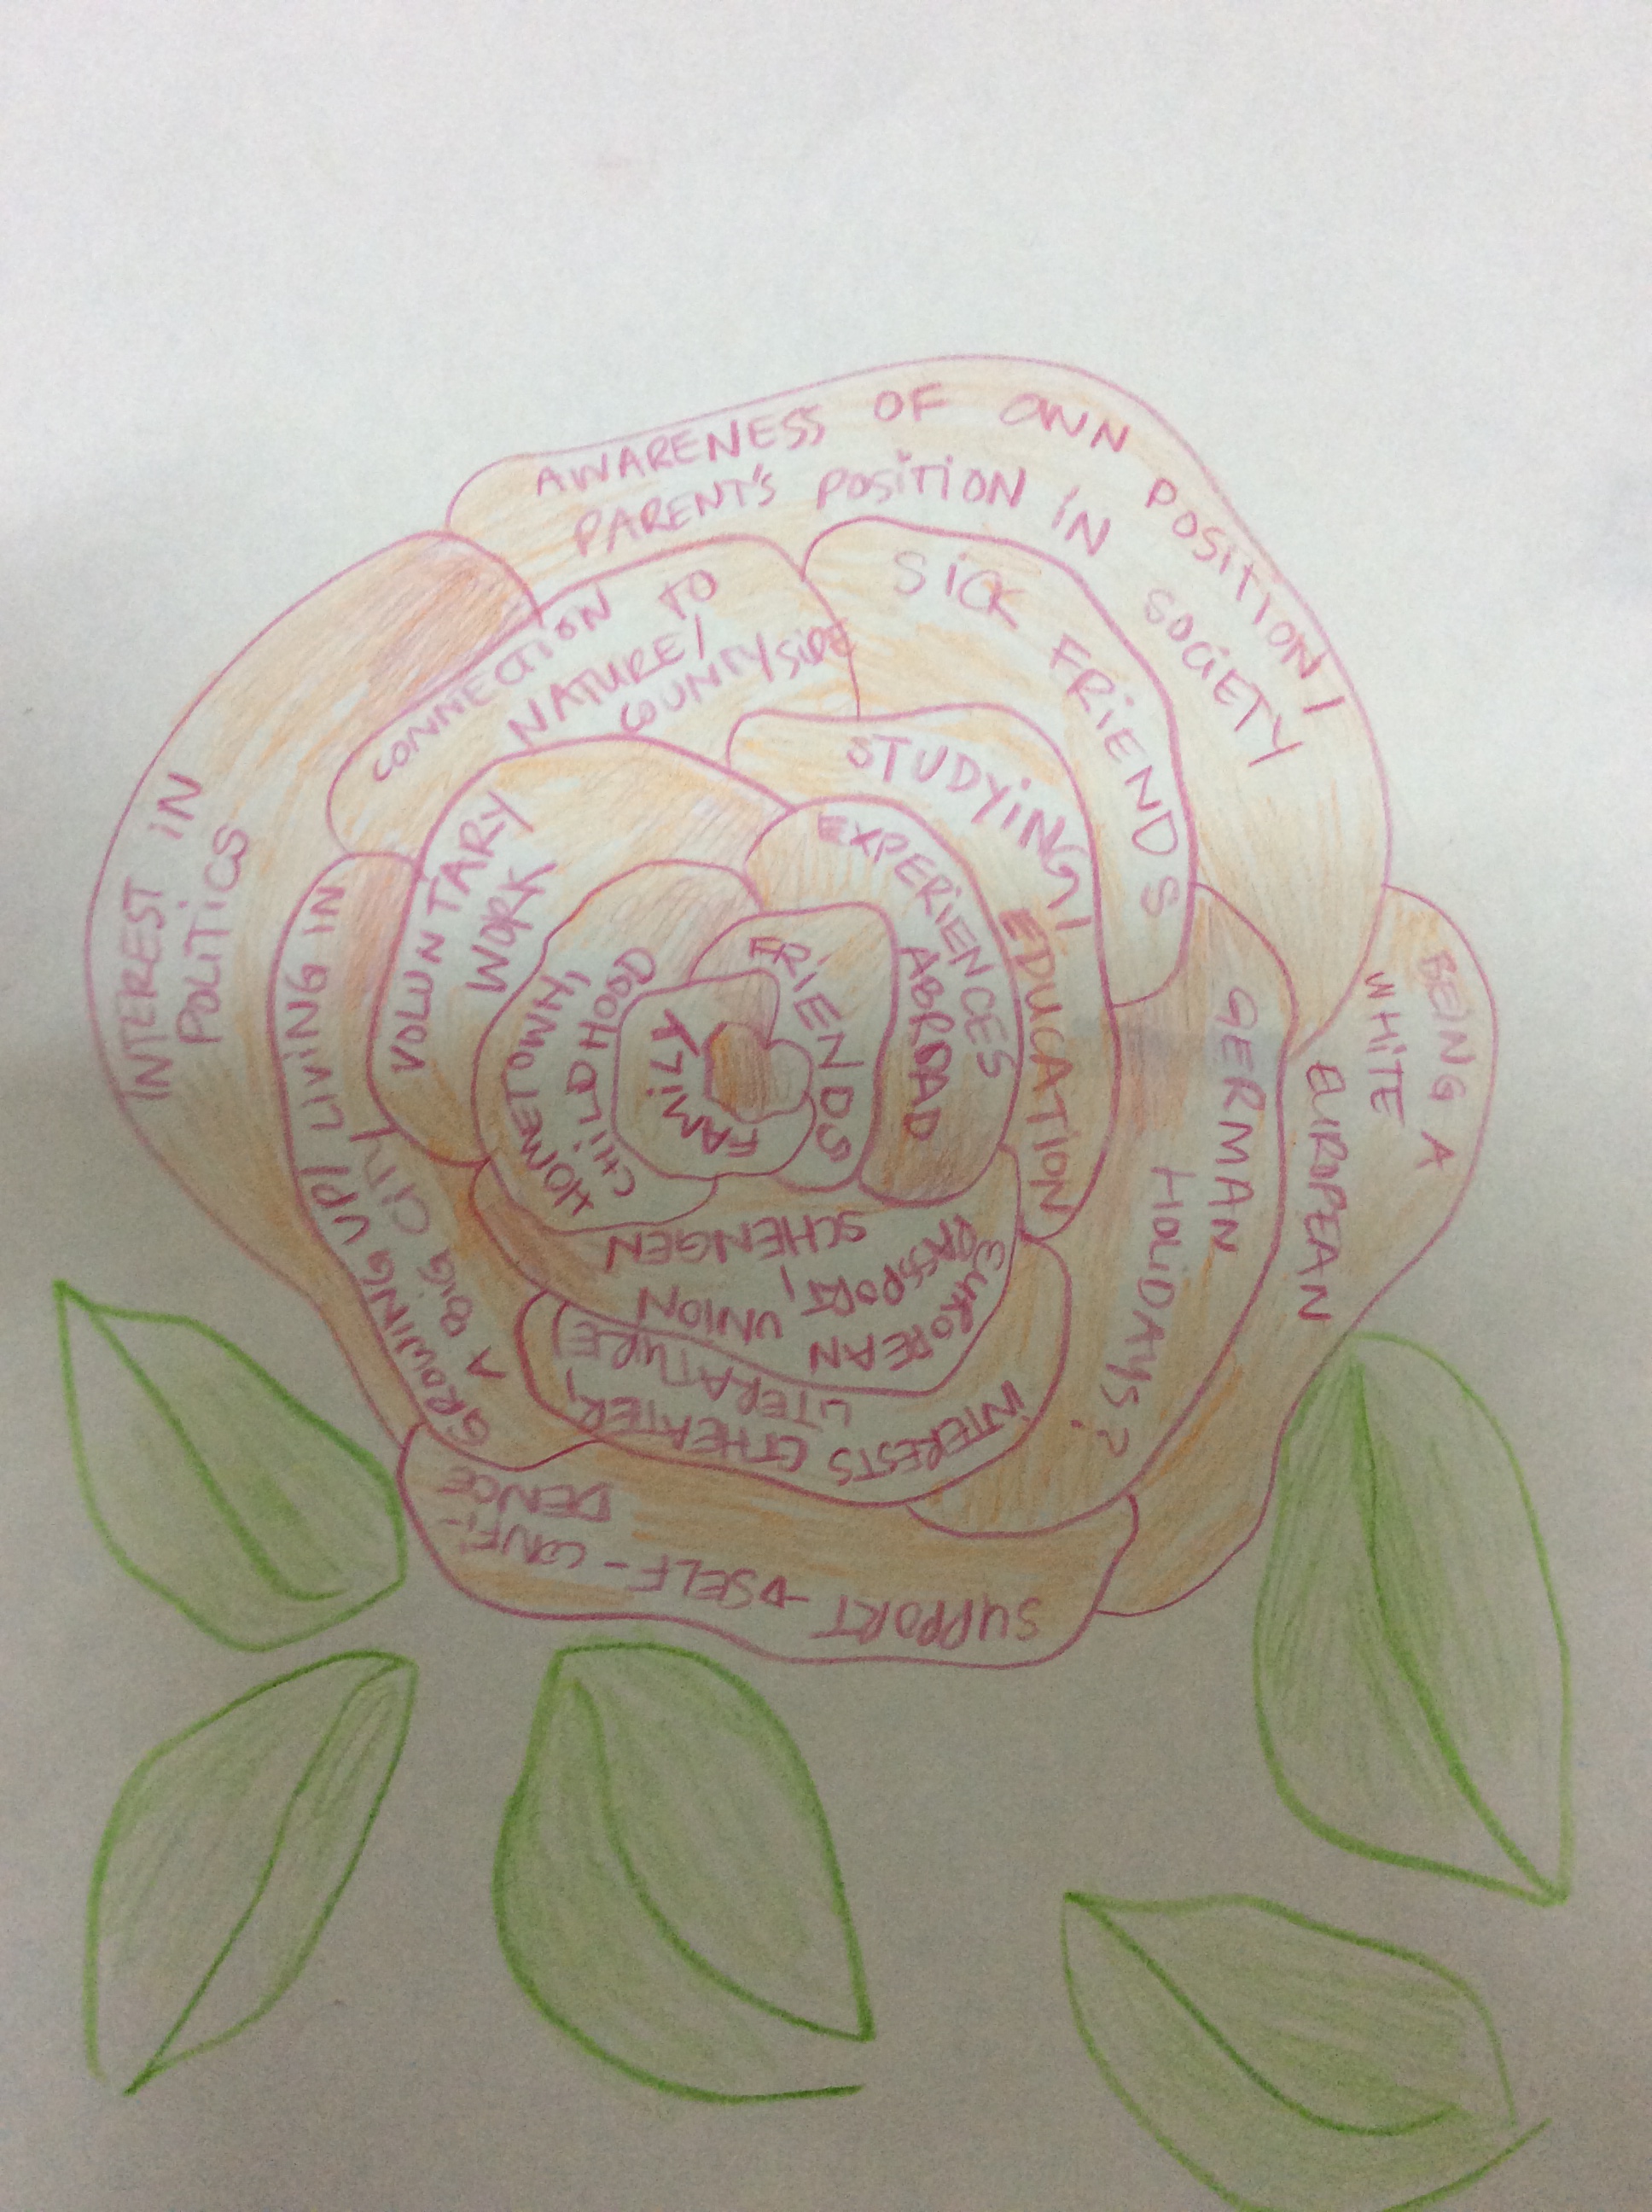 AWARENESS OF OWN POSITION/
PARENT'S POSITION IN SOCIETY
SICK FRIENDS
CONNECTION TO
NATURE/
COUNTYSIDE
INTEREST IN
POLITICS
STUDYING/
EDUCATION
EXPERIENCES
ABROAD
VOLUNTARY
WORK
FRIENDS
FAMILY
HOMETOWN,
CHILDHOOD
GROWING UP/ LIVING IN
A BIG CITY
BEING A
WHITE
EUROPEAN
GERMAN
HOLIDAYS?
EUROPEAN UNION
PASSPORT,
SCHENGEN
INTERESTS (THEATER,
LITERATURE)
SUPPORT → SELF-CONFI-
DENCE